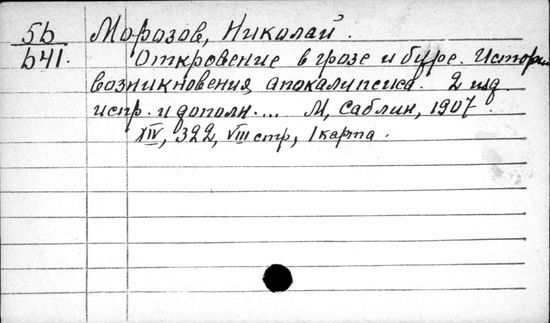 5b Морозов, Николай.
b41. Откровение в грозе и буре. Истори
возникновения апокалипсиса. 2 изд.
испр. и дополн.... М, Саблин, 1907.
XIV, 322, VIII стр, 1 карта.